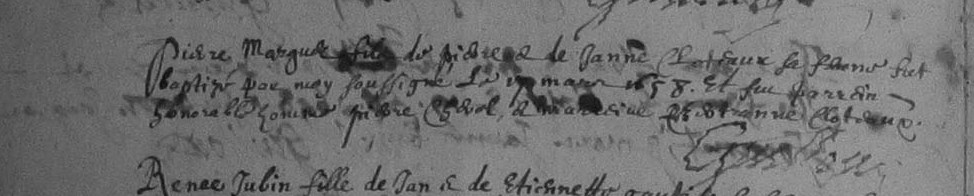 Pierre Marque fils de pierre & de Janne Cloteaux sa femme fut
baptizé par moy soussigné Le mars 1658. Et fut parrein
honorable homme pierre & mareine Cloteaux.
Renee Jubin fille de Jan & de Etiennette